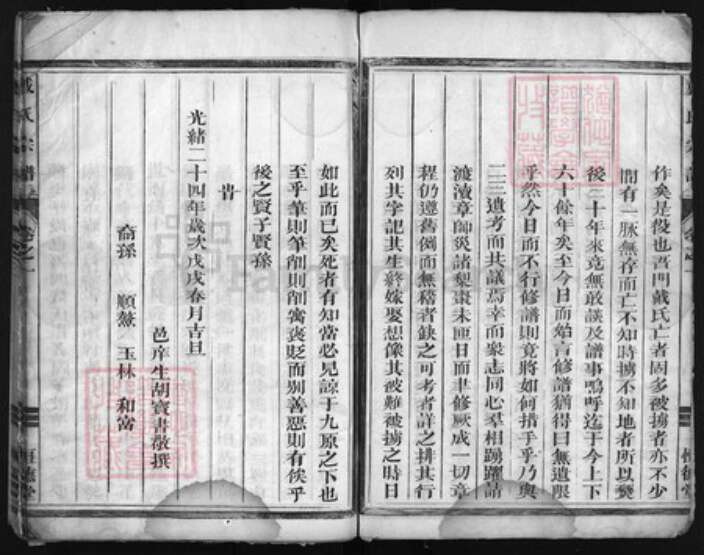 作矣是役也吾門戴氏亡者固多被擄者亦不少
間有一脉無存而亡不知時擄不知地者所以變
後三十年來竟無敢談及譜事嗚呼迄于今上下
六十餘年矣至今日而始言修譜猶得曰無遺限
乎然今日而不行修譜則竟將如何措手乎乃與
二三遺考而共議焉幸而衆志同心羣相踴躍請
瀆章師災諸梨棗未匝日而聿修厥成一切章
程仍遵舊例而無稽者缺之可考者詳之排其行
列其字記其生終嫁娶想像其被難被擄之時日
如此而已矣死者有知當必見諒于九原之下也
至乎筆則筆削則削寓褒貶而别善惡則有俟乎
後之賢子賢孫
旹
光緒二十四年歲次戊戌春月吉旦
邑庠生胡寶書敬撰
裔孫 順鰲 玉林 和富
戴氏宗譜
卷之一
恒德堂